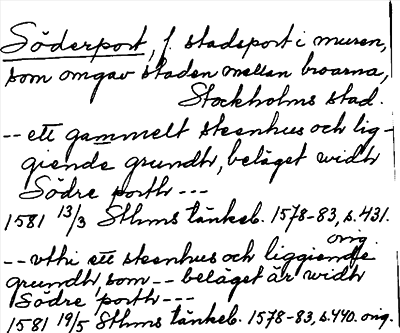 Söderport, f. stadsport i muren,
som omgav staden mellan broarna,
Stockholms stad.
-- ett gammelt steenhus och lig-
giende grundh, beläget widh
Södre porth ---
1581 13/3 Sthms tänkeb. 1578-83, s. 431.
orig.
-- vthi ett steenhus och liggiende
grundh, som -- beläget är widh
Södre porth ---
1581 19/5 Sthms tänkeb. 1578-83, s. 440. orig.